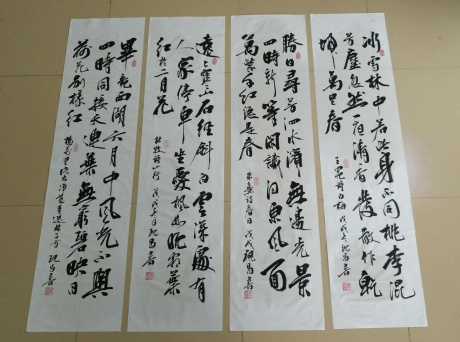 冰雪林中著此身不同桃李混
芳塵忽然一夜清香發散作乾
坤萬里春
王冕詩白梅 戊戌年
勝日尋芳泗水濱無邊光景
一時新等閒識得東風面
萬紫千紅總是春
朱熹詩春日 戊戌
遠上寒山石徑斜白雲深處有
人家停車坐愛楓林晚霜葉
紅於二月花
杜牧詩山行 戊戌年
畢竟西湖六月中風光不與
四時同接天蓮葉無窮碧映日
荷花別樣紅
楊萬里曉出淨慈寺送林子方